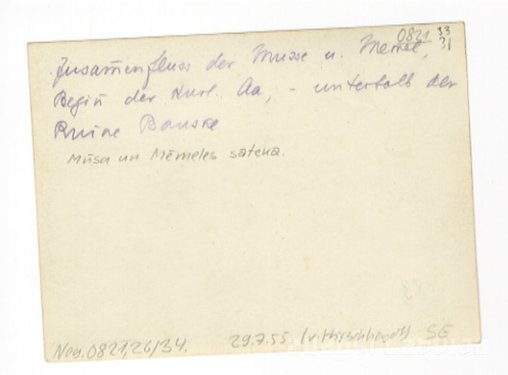 0821 33
31
Zusammenfluss der Musse u. Memel,
Begin der Kurl. Aa, - unterhalb der
Ruine Bauske
Mūsa un Mēmeles satece.
Neg. 0821,26/34. 29.7.55 SE